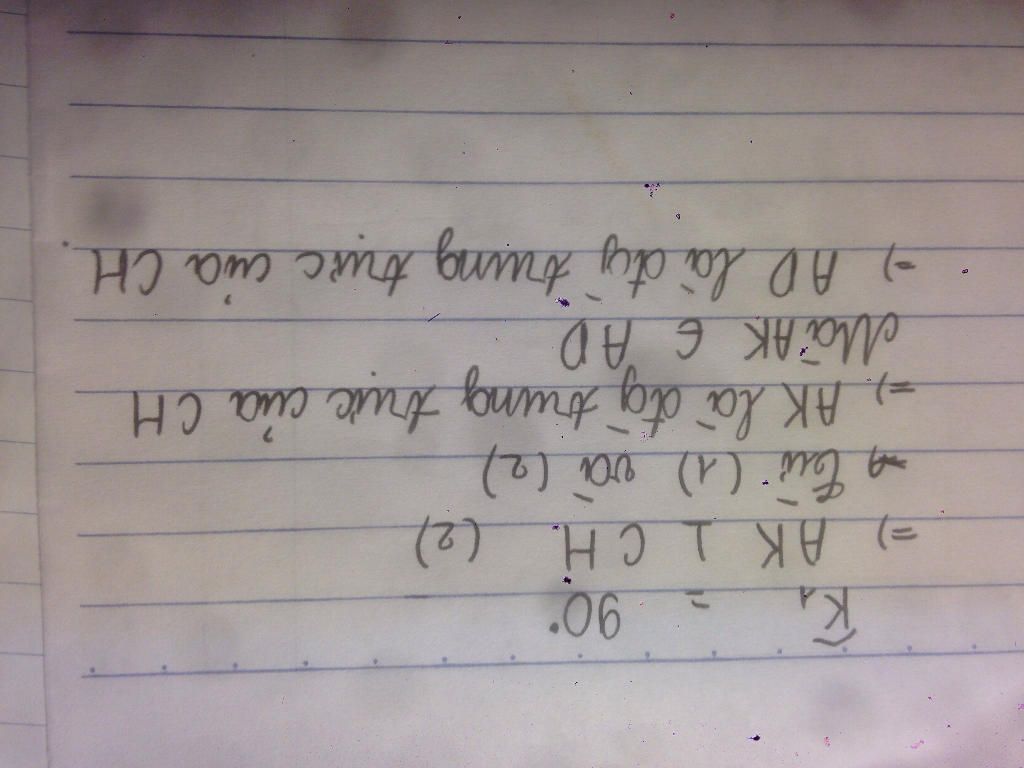 K̂₁ = 90°
=) AK ⊥ CH (2)
Từ (1) và (2)
=) AK là đg trung trực của CH
Mà AK ∈ AD
=) AD là đg trung trực của CH.